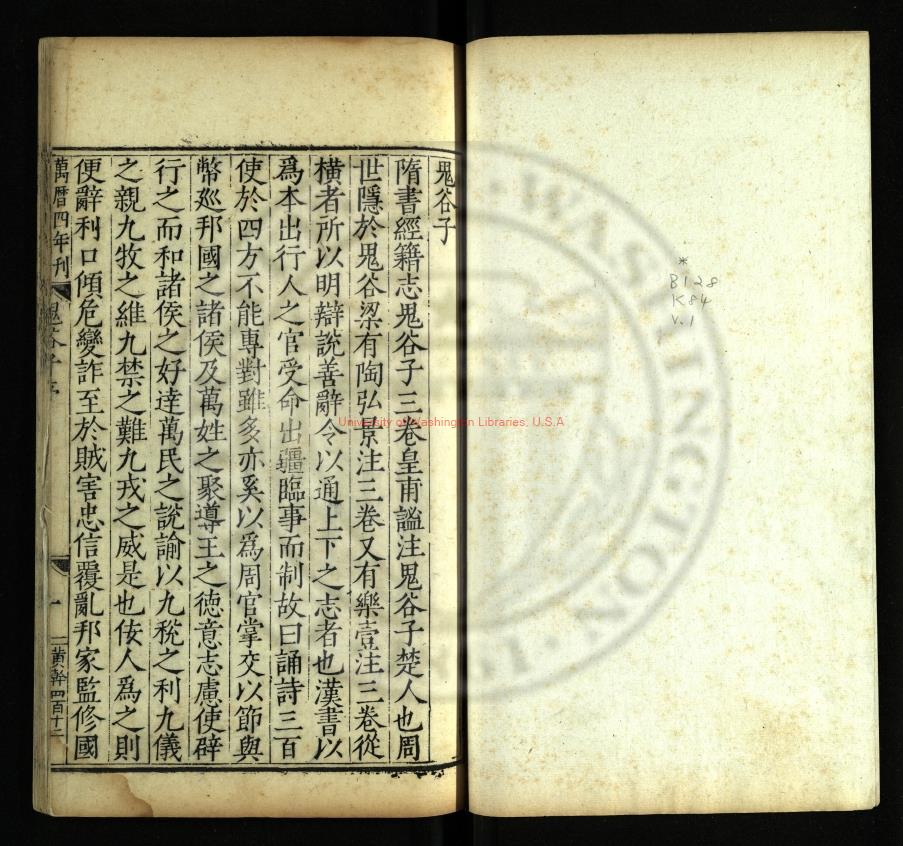 鬼谷子
隋書經籍志鬼谷子三卷皇甫謐注鬼谷子楚人也周
世隱於鬼谷梁有陶弘景注三卷又有樂壹注三卷從
橫者所以明辯說善辭令以通上下之志者也漢書以
爲本出行人之官受命出疆臨事而制故曰誦詩三百
使於四方不能專對雖多亦奚以爲周官掌交以節與
幣廵邦國之諸侯及萬姓之聚導王之德意志慮使辟
行之而和諸侯之好達萬民之說諭以九稅之利九儀
之親九牧之維九禁之難九戎之威是也佞人爲之則
便辭利口傾危變詐至於賊害忠信覆亂邦家監修國
萬曆四年刊 鬼谷子 一 黃幹四百十二
University of Washington Libraries, U.S.A
WASHINGTON
*
B128
K84
v.1